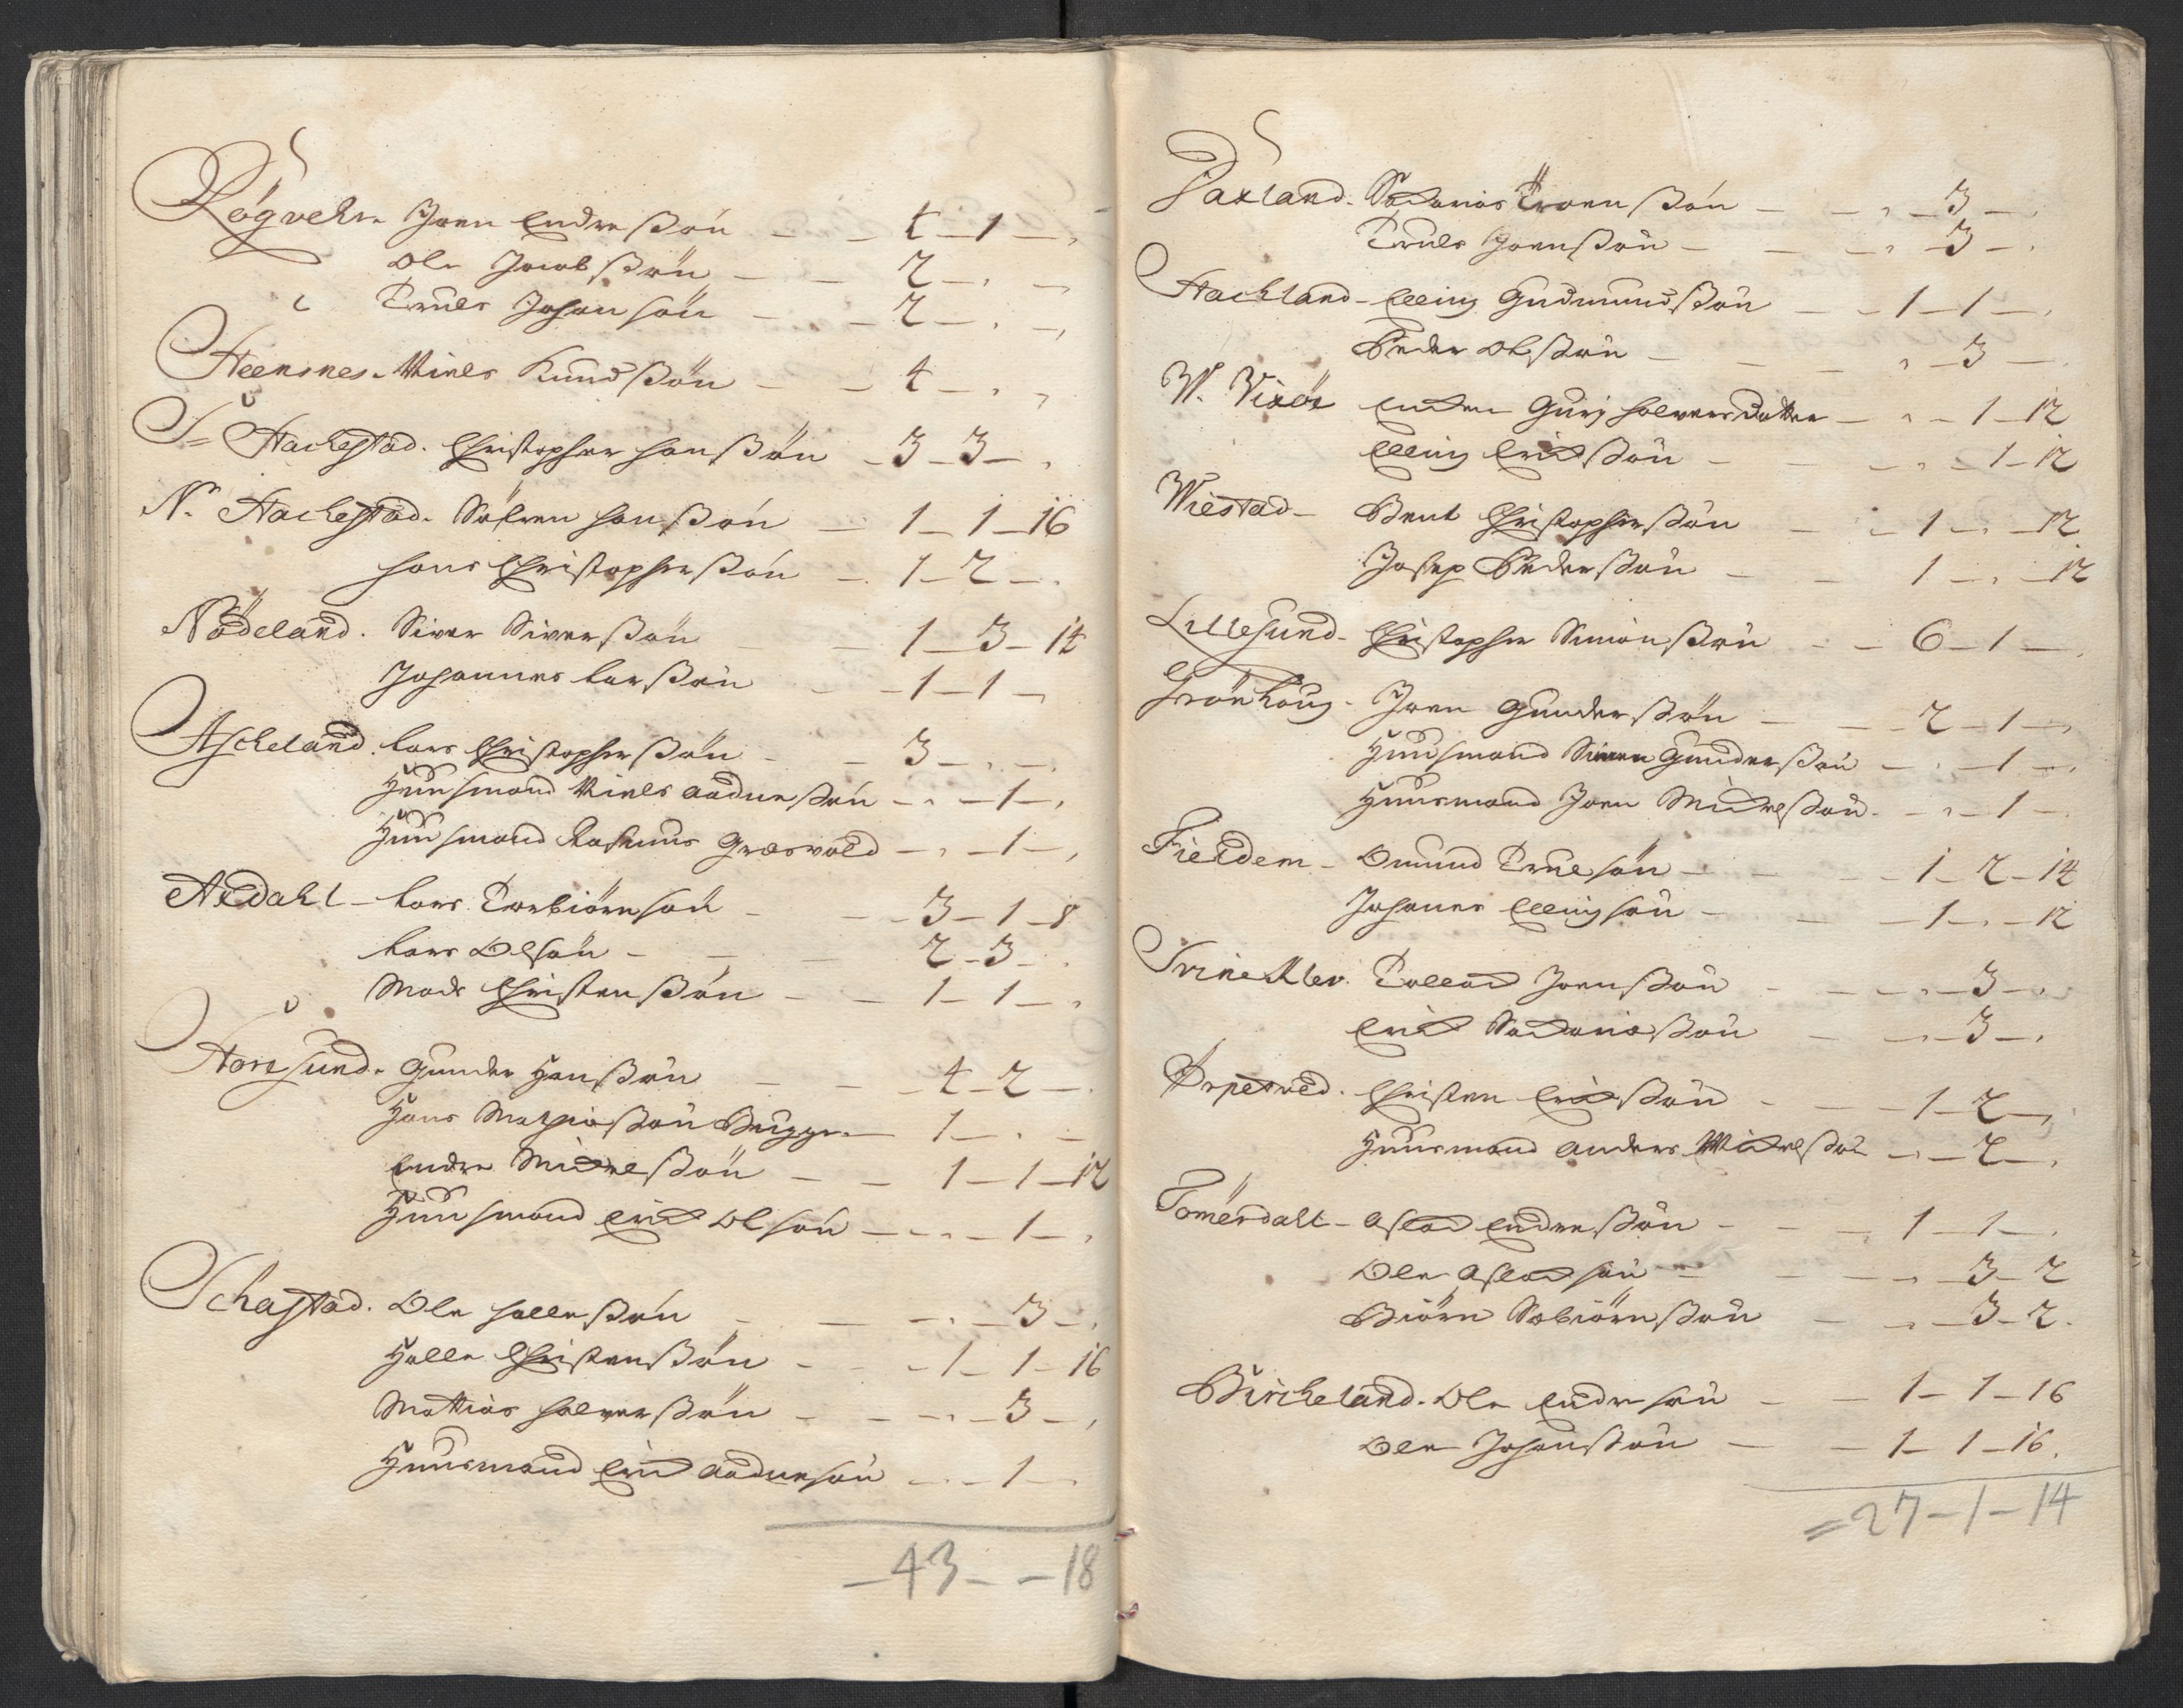 Røgvelen Joen Endreßøn – – 4 – 1 –,
Ole Jacobßøn – – 2 – . –,
Truels Johansøn – – 2 – . –,
Steensnes. Niels Knudßøn – – 4 – . ,
S= Hachestad. Christopher Hanßøn – 3 – 3 – .
N. Hachestad. Søfren Hanßøn – 1 – 1 – 16
Hans Christopherßøn – 1 – 2 – .
Nødeland. Siver Siverßøn – 1 – 3 – 14
Johannes Larßøn – 1 – 1 –
Ascheland. Lars Christopherßøn – – 3 – . –
Huusmand Niels Aadneßøn – . – 1 – ,
Huusmand Rasmus Græsvold – . – 1 – ,
Aædahl – Lars Torbiørnsøn – – 3 – 1 – 8
Lars Olsøn – – 2 – 3 – .
Mads Christenßøn – – 1 – 1 – ,
Gunder Hanßøn – – 4 – 2 – .
Hans Mathiaßøn Brygger – 1 – . –
Endre Michelßøn – – 1 – 1 – 12
Huusmand Erich Olsøn – . – 1 – ,
Schastad. Ole Halleßøn – – . – 3 – ,
Halle Christenßøn – – 1 – 1 – 16
Mattias Halverßøn – – . – 3 – ,
Huusmand Erich Aadnesøn – . – 1 –
– 43 – – 18
Paxland. Zacarias Troenßøn – – , – 3 – ,
Truels Joenßøn – – , – 3 – .
Hachland – Elling Gudmundßøn – – 1 – 1 – .
Peder Olsßøn – – , – 3 –
W. Vixør Encken Guri Halversdatter – , – 1 – 12
Elling Erichßøn – – , – 1 – 12
Wiestad – Bent Christopherßøn – – 1 – . – 12
Josep Pederßøn – – 1 – . – 12
Lillesund – Christopher Simonßøn – – 6 – 1 – .
Grønhoug – Joen Gunderßøn – – 2 – 1 – ,
Huusmand Simen Gunderßøn – . – 1 – ,
Huusmand Joen Michelßøn – , – 1 – .
Fieldem – Omund Truelsøn – – 1 – 2 – 14
Johanes Ellingsøn – – 1 – . – 12
Tollach Joenßøn – – , – 3 – ,
Erich Zacariaßøn – – , – 3 – ,
Christen Erichßøn – – 1 – 2 – ,
Huusmand Anders Michelßøn – , – 2 – ,
Tomerdall – Aslach Endreßøn – – 1 – 1 – .
Ole Aslachsøn – – , – 3 – 2
Biørn Asbiørnßøn – – , – 3 – 2.
Bircheland. Ole Endresøn – – 1 – 1 – 16
Ole Johanßøn – – 1 – 1 – 16.
= 27 – 1 – 14